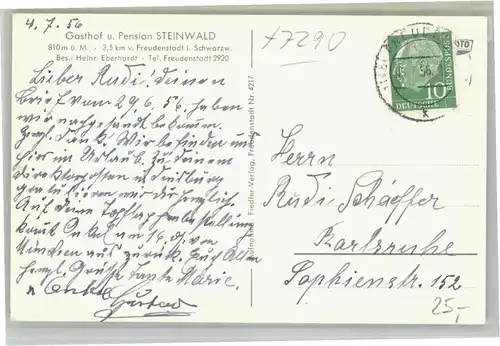 4.7.56
Gasthof u. Pension STEINWALD
810 m ü. M. - 3,5 km v. Freudenstadt i. Schwarzw.
Bes.: Heinr. Eberhardt - Tel. Freudenstadt 2920
Lieber Rudi! Deinen
Brief vom 29.6.56 haben
wir nachgesandt bekommen.
Herzl. Dank. Wir befinden uns
hier im Urlaub. Zu deinem
in Duisburg
gratulieren wir dir herzlich.
Auf deine
kommt Onkel am 16. ds. von
München aus zurück. Euch Allen
herzl. Grüße Tante Marie.
u. Onkel
Gustav
Fiedler-Verlag, Freudenstadt Nr. 4217
+7290
10
DEUTSCHE
BUNDESPOST
Herrn
Rudi Schäffer
Karlsruhe
Sophienstr. 152
25,-